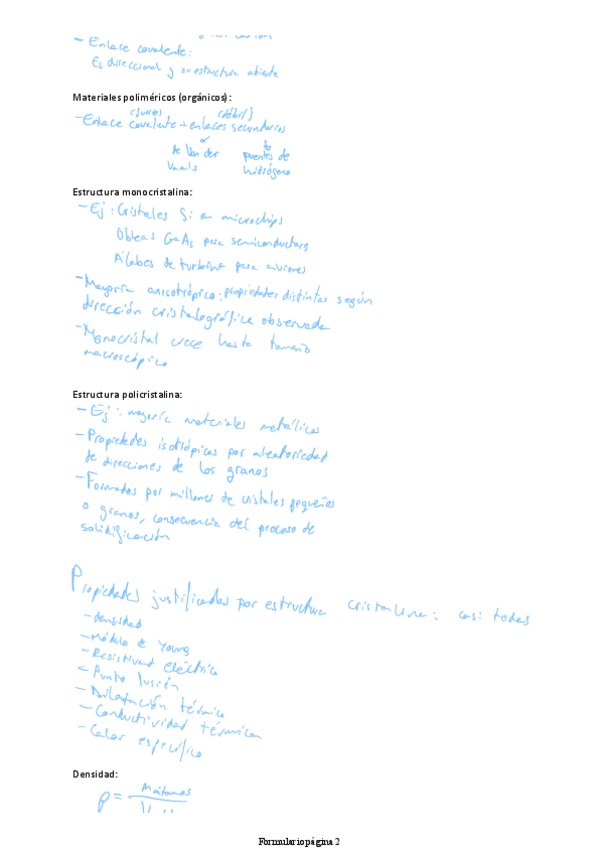 - Enlace covalente:
Es direccional y su estructura abierta
Materiales poliméricos (orgánicos):
(fuerte) (débil)
- Enlace covalente + enlaces secundarios
de Van der Waals
puentes de hidrógeno
Estructura monocristalina:
- Ej: Cristales Si en microchips
Obleas GaAs para semiconductores
Álabes de turbina para aviones
- Mayoría anisotrópico: propiedades distintas según
dirección cristalográfica observada
- Monocristal crece hasta tamaño
macroscópico
Estructura policristalina:
- Ej: mayoría materiales metálicos
- Propiedades isotrópicas por aleatoriedad
de direcciones de los granos
- Formados por millones de cristales pequeños
o granos, consecuencia del proceso de
solidificación
Propiedades justificadas por estructura cristalina: casi todas
- densidad
- Módulo de Young
- Resistividad eléctrica
- Punto fusión
- Dilatación térmica
- Conductividad térmica
- Calor específico
Densidad:
ρ = Mátomos
Formulario página 2